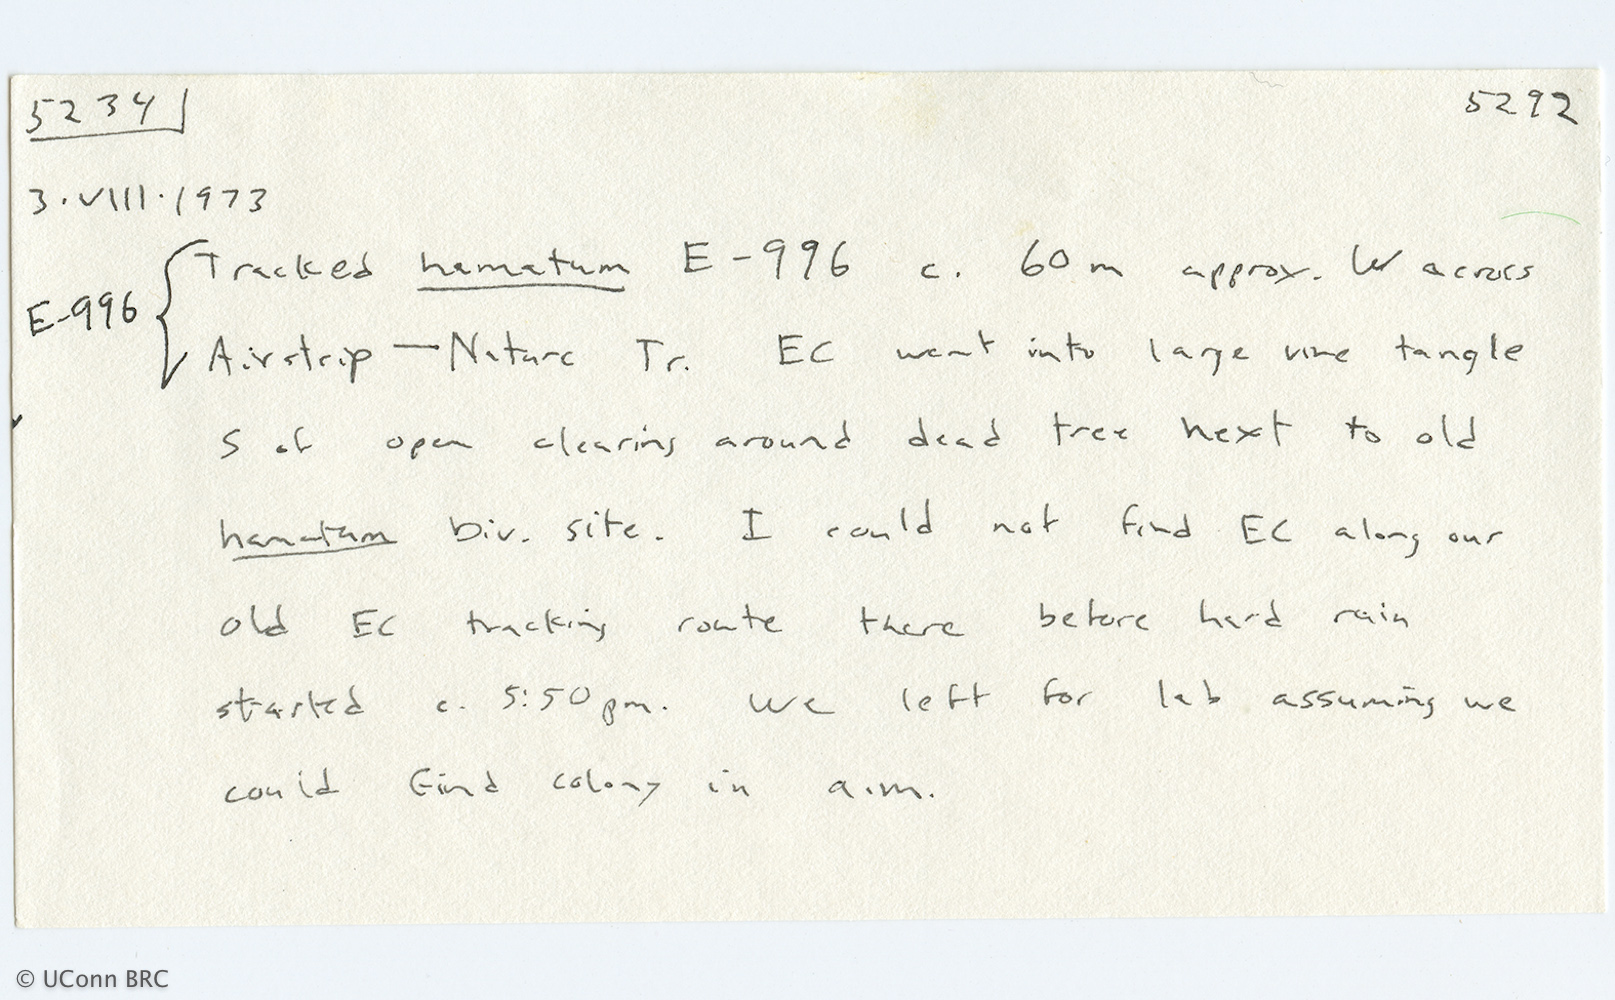 5234 5292
3.VIII.1973
Tracked hamatum E-996 c. 60 m approx. W across
E-996
Airstrip — Nature Tr. EC went into large vine tangle
S of open clearing around dead tree next to old
hamatum Biv. site. I could not find EC along our
old EC tracking route there before hard rain
started c. 5:50 pm. We left for lab assuming we
could find colony in a.m.
© UConn BRC